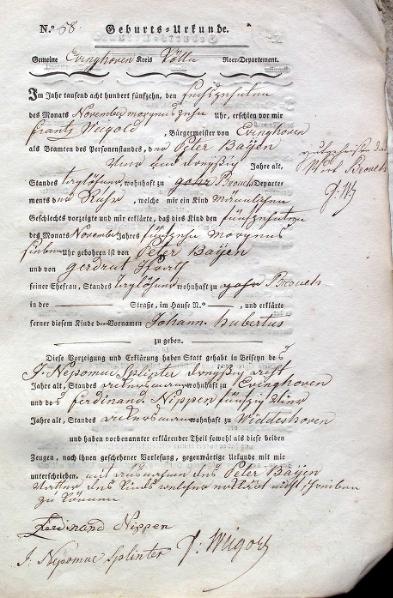 N.º 58 Geburts-Urkunde.
Gemeine Evinghoven Kreis Kölln Roer-Departement.
Im Jahr tausend acht hundert fünfzehn, den fünfzehnten
des Monats November morgens zehn Uhr, erschien vor mir
frantz Weigold, Bürgermeister von Evinghoven
als Beamten des Personenstands, der Peter Baÿen
vier und dreyßig Jahre alt,
Standes taglöhner, wohnhaft zu gohr Brouch Departe-
ments der Ruhr, welcher mir ein Kind männlichen
Geschlechts vorzeigte und mir erklärte, daß dies Kind den fünfzehnten
des Monats November Jahres fünfzehn morgens
sieben Uhr gebohren ist von Peter Baÿen
und von gerdrut
seiner Ehefrau, Standes taglöhner wohnhaft zu gohr Brouch
in der Straße, im Hause N.º , und erklärte
ferner diesem Kinde den Vornamen Johann hubertus
zu geben.
Diese Vorzeigung und Erklärung haben Statt gehabt in Beiseyn des
J. Nepomuc Splinter dreyßig acht
Jahre alt, Standes ackersmann wohnhaft zu Evinghoven
und des ferdinand Nippen fünfzig
Jahre alt, Standes ackersmann wohnhaft zu Widdeshoven
und haben vorbenannter erklärender Theil sowohl als diese beiden
Zeugen, nach ihnen geschehener Vorlesung, gegenwärtige Urkunde mit mir
unterschrieben, mit ausnahme des Peter Baÿen
Vatter des Kinds welcher erklärt nicht schreiben
zu können
Ferdinand Nippen
J: Nepomuc Splinter
Wort Brouch